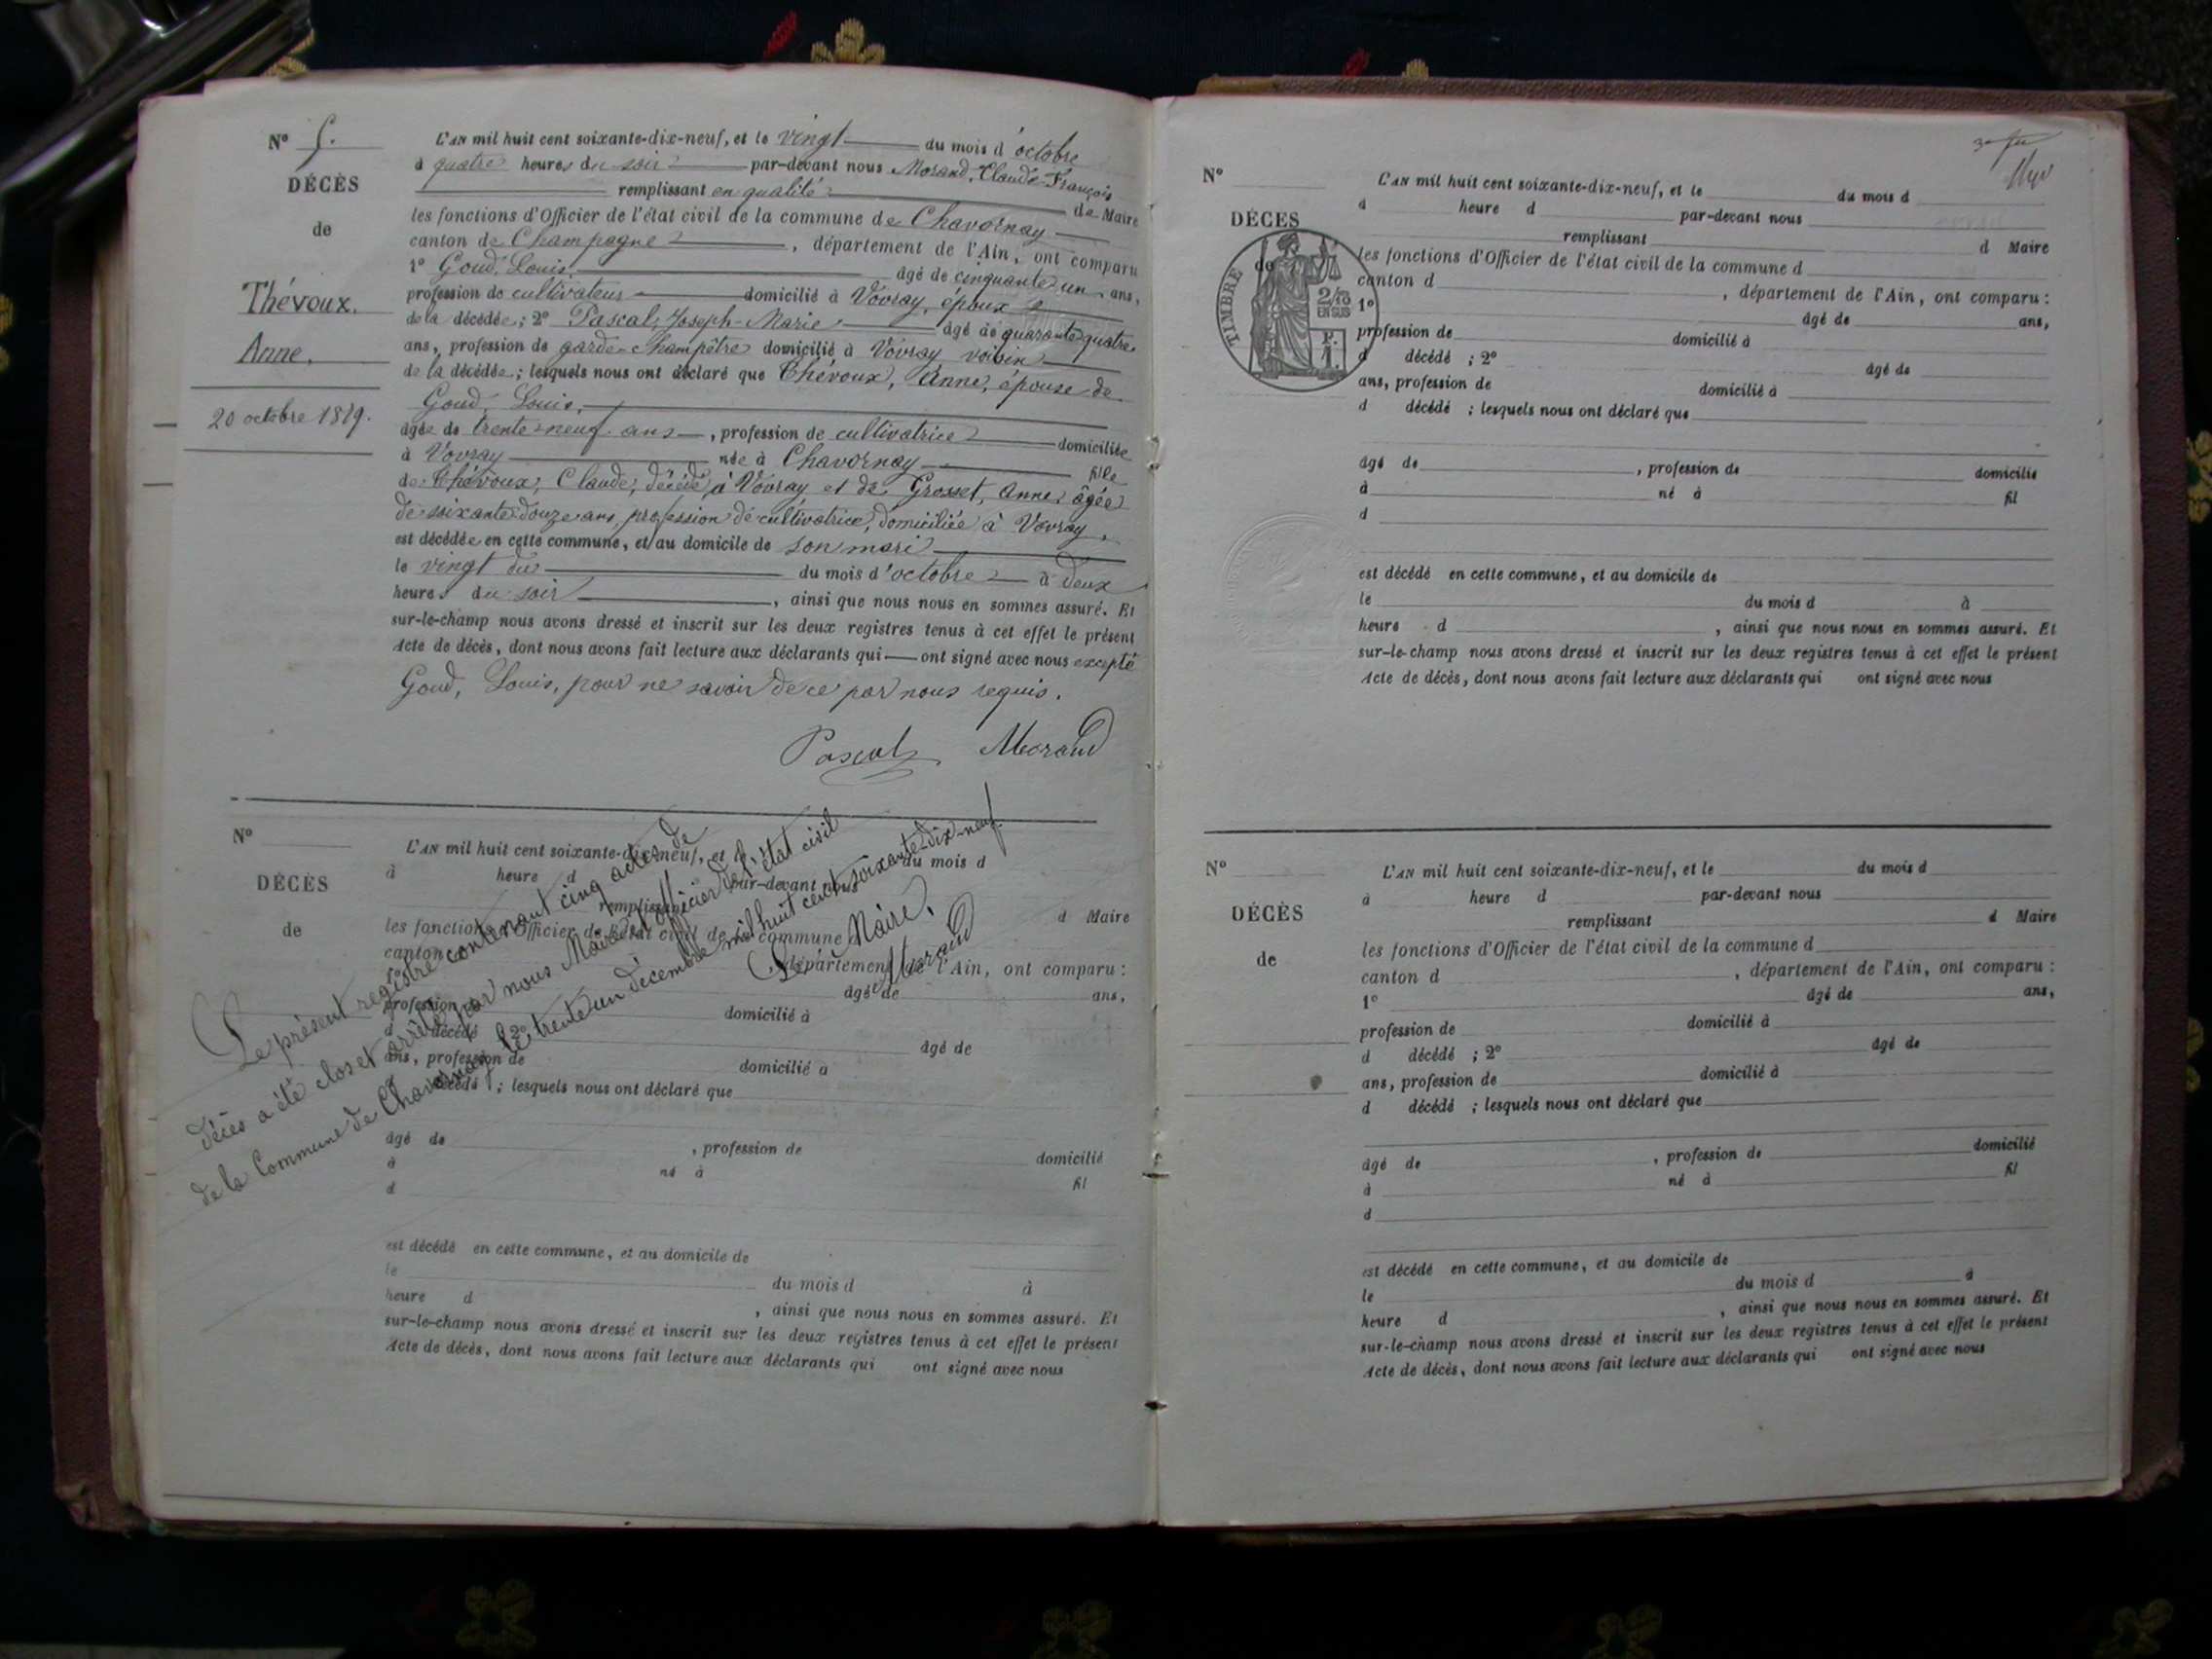 N° 5.
DÉCÈS
de
Thévoux.
Anne.
20 octobre 1879.
L'AN mil huit cent soixante-dix-neuf, et le vingt du mois d'octobre
à quatre heures du soir par-devant nous Morand, Claude-François
remplissant en qualité de Maire
les fonctions d'Officier de l'état civil de la commune de Chavornay
canton de Champagne, département de l'Ain, ont comparu
1° Goud, Louis, âgé de cinquante-un ans,
profession de cultivateur domicilié à Vovray, époux
de la décédée; 2° Pascal, Joseph-Marie âgé de quarante-quatre
ans, profession de garde-champêtre domicilié à Vovray voisin
de la décédée; lesquels nous ont déclaré que Thévoux, Anne, épouse de
Goud, Louis,
âgée de trente-neuf ans, profession de cultivatrice domiciliée
à Vovray née à Chavornay fille
de Thévoux, Claude, décédé à Vovray et de Grosset, Anne, âgée
de soixante-douze ans, profession de cultivatrice, domiciliée à Vovray,
est décédée en cette commune, et au domicile de son mari
le vingt du mois d'octobre à deux
heures du soir, ainsi que nous nous en sommes assuré. Et
sur-le-champ nous avons dressé et inscrit sur les deux registres tenus à cet effet le présent
Acte de décès, dont nous avons fait lecture aux déclarants qui ont signé avec nous excepté
Goud, Louis, pour ne savoir de ce par nous requis.
Pascal Morand
N°
DÉCÈS
de
L'AN mil huit cent soixante-dix-neuf, et le du mois d
à heure d par-devant nous
remplissant d Maire
les fonctions d'Officier de l'état civil de la commune d
canton département de l'Ain, ont comparu :
1° âgé de ans,
profession domicilié à
d décédé 2° âgé de
ans, profession de domicilié à
décédé ; lesquels nous ont déclaré que
âgé de , profession de domicilié
à né à fil
d
est décédé en cette commune, et au domicile de
le du mois d à
heure d , ainsi que nous nous en sommes assuré. Et
sur-le-champ nous avons dressé et inscrit sur les deux registres tenus à cet effet le présent
Acte de décès, dont nous avons fait lecture aux déclarants qui ont signé avec nous
Le présent registre contenant cinq actes de
décès a été clos et arrêté par nous Maire et officier de l'état civil
de la Commune de Chavornay le trente un décembre mil huit cent soixante-dix-neuf.
Le Maire,
Morand
N°
DÉCÈS
de
TIMBRE
2/10
EN SUS
P.
1.
L'AN mil huit cent soixante-dix-neuf, et le du mois d
à heure d par-devant nous
remplissant d Maire
les fonctions d'Officier de l'état civil de la commune d
canton d , département de l'Ain, ont comparu :
1° âgé de ans,
profession de domicilié à
d décédé ; 2° âgé de
ans, profession de domicilié à
d décédé ; lesquels nous ont déclaré que
âgé de , profession de domicilié
à né à fil
d
est décédé en cette commune, et au domicile de
le du mois d à
heure d , ainsi que nous nous en sommes assuré. Et
sur-le-champ nous avons dressé et inscrit sur les deux registres tenus à cet effet le présent
Acte de décès, dont nous avons fait lecture aux déclarants qui ont signé avec nous
N°
DÉCÈS
de
L'AN mil huit cent soixante-dix-neuf, et le du mois d
à heure d par-devant nous
remplissant d Maire
les fonctions d'Officier de l'état civil de la commune d
canton d , département de l'Ain, ont comparu :
1° âgé de ans,
profession de domicilié à
d décédé ; 2° âgé de
ans, profession de domicilié à
d décédé ; lesquels nous ont déclaré que
âgé de , profession de domicilié
à né à fil
d
est décédé en cette commune, et au domicile de
le du mois d à
heure d , ainsi que nous nous en sommes assuré. Et
sur-le-champ nous avons dressé et inscrit sur les deux registres tenus à cet effet le présent
Acte de décès, dont nous avons fait lecture aux déclarants qui ont signé avec nous